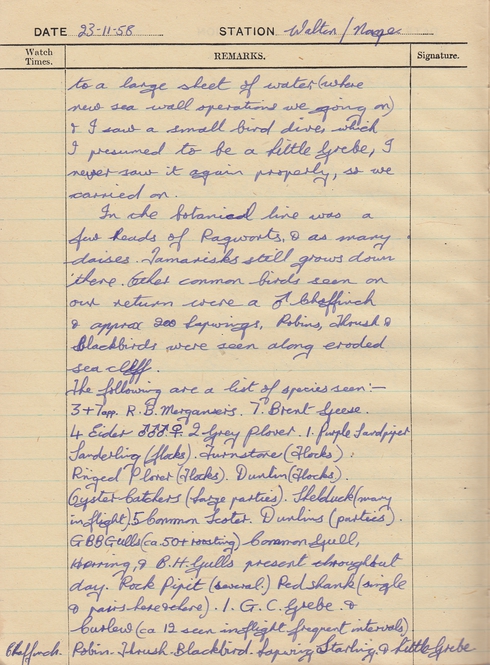 DATE 23-11-58 STATION Walton / Naze
Watch Times. REMARKS. Signature.
to a large sheet of water (where
new sea wall operations we going on)
& I saw a small bird dive, which
I presumed to be a Little Grebe, I
never saw it again properly, so we
carried on.
In the botanical line was a
few heads of Ragworts, & as many
daises. Tamarisks still grows down
there. Other common birds seen on
our return were a ♂ Chaffinch
& approx 200 Lapwings, Robins, Thrush &
Blackbirds were seen along eroded
sea cliff.
The following are a list of species seen:-
3+7opp. R.B. Mergansers. 7. Brent Geese.
4 Eider ♂♂♂♀. 2 Grey Plover. 1. Purple Sandpiper
Sanderling (flocks). Turnstone (flocks).
Ringed Plover (flocks). Dunlin (flocks).
Oyster Catchers (large parties). Shelduck (many
in flight) 5 Common Scoter. Dunlins (parties).
GBBGulls (ca. 50+ roosting) Common Gull,
Herring, & B.H. Gulls present throughout
day. Rock Pipit (several.) Redshank (single
& pairs here & there). 1. G.C. Grebe. &
Curlew (ca 12 seen in flight frequent intervals)
Chaffinch. Robin. Thrush. Blackbird. Lapwing Starling. & Little Grebe